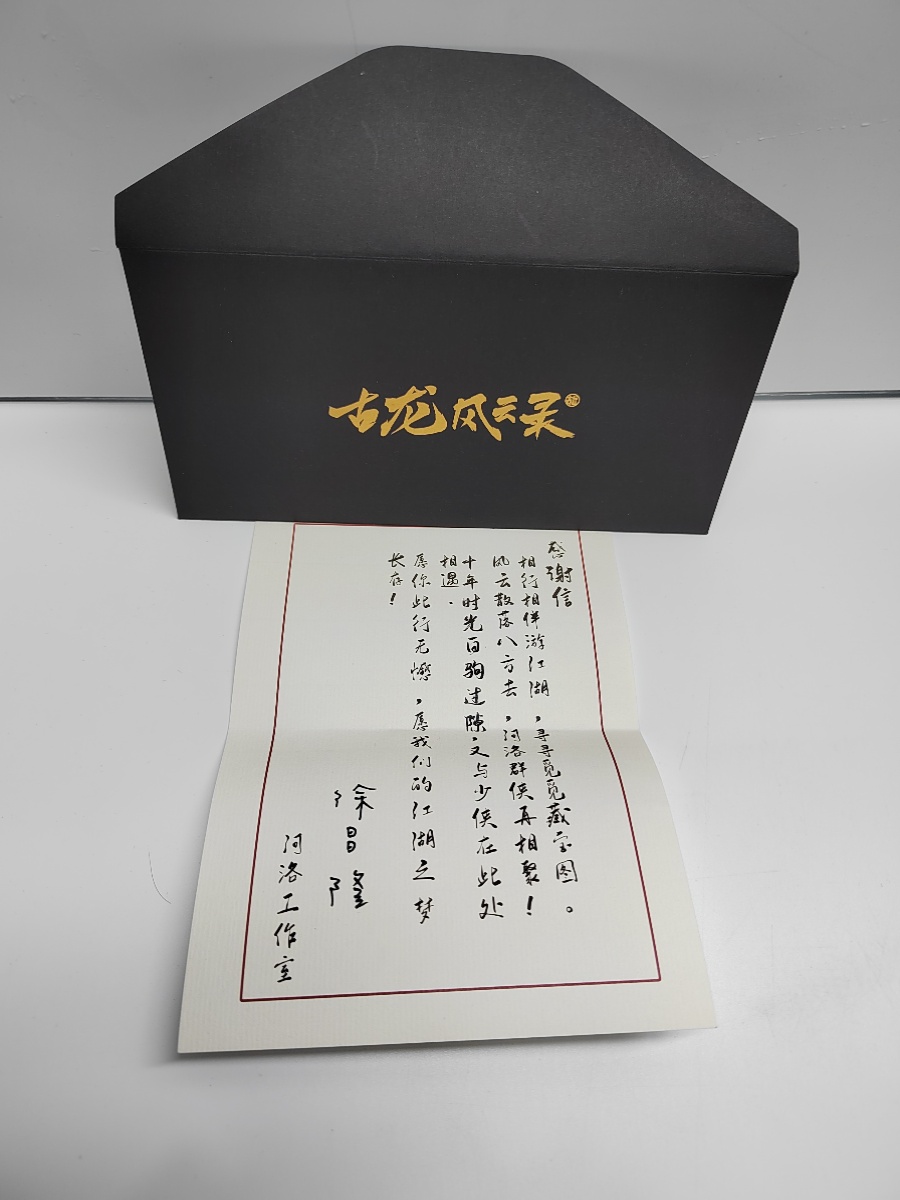 古龙风云录
感谢信
相行相伴游江湖，寻寻觅觅藏宝图。
风云散落八方去，河洛群侠再相聚！
十年时光白驹过隙，又与少侠在此处
相遇．
愿你此行无憾，愿我们的江湖之梦
长存！
徐昌隆
河洛工作室